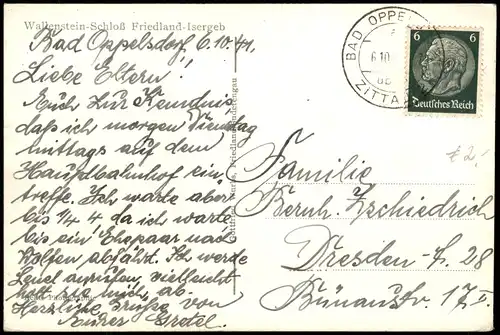 Wallenstein-Schloß Friedland-Isergeb
Bad Oppelsdorf, 6.10.41.
Liebe Eltern!
Euch zur Kenndnis
daß ich morgen Dienstag
mittags auf dem
Hauptbahnhof ein
treffe. Ich warte aber
bis 1/4 4 da ich warte
bis ein Ehepaar nach
Wolfen abfährt. Ich werde
Lenel anrufen, vielleicht
holt sie mich ab.
Herzliche Grüße von
Eurer Gretel.
BAD OPPEL
6.10.
ZITTA
6 6
Deutsches Reich
€ 2,-
Familie
Bernh. Zschiedrich
Dresden-A. 28
Bünaustr. 17 I.